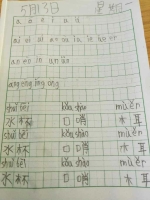 5月13日 星期一
a o e i u ü
ai ei ui ao ou iu ie üe er
an en in un ün
ang eng ing ong
shuǐ bēi kǒu shào mù ěr
水杯 口哨 木耳
shuǐ bēi kǒu shào mù ěr
水杯 口哨 木耳
shuǐ bēi kǒu shào mù ěr
水杯 口哨 木耳